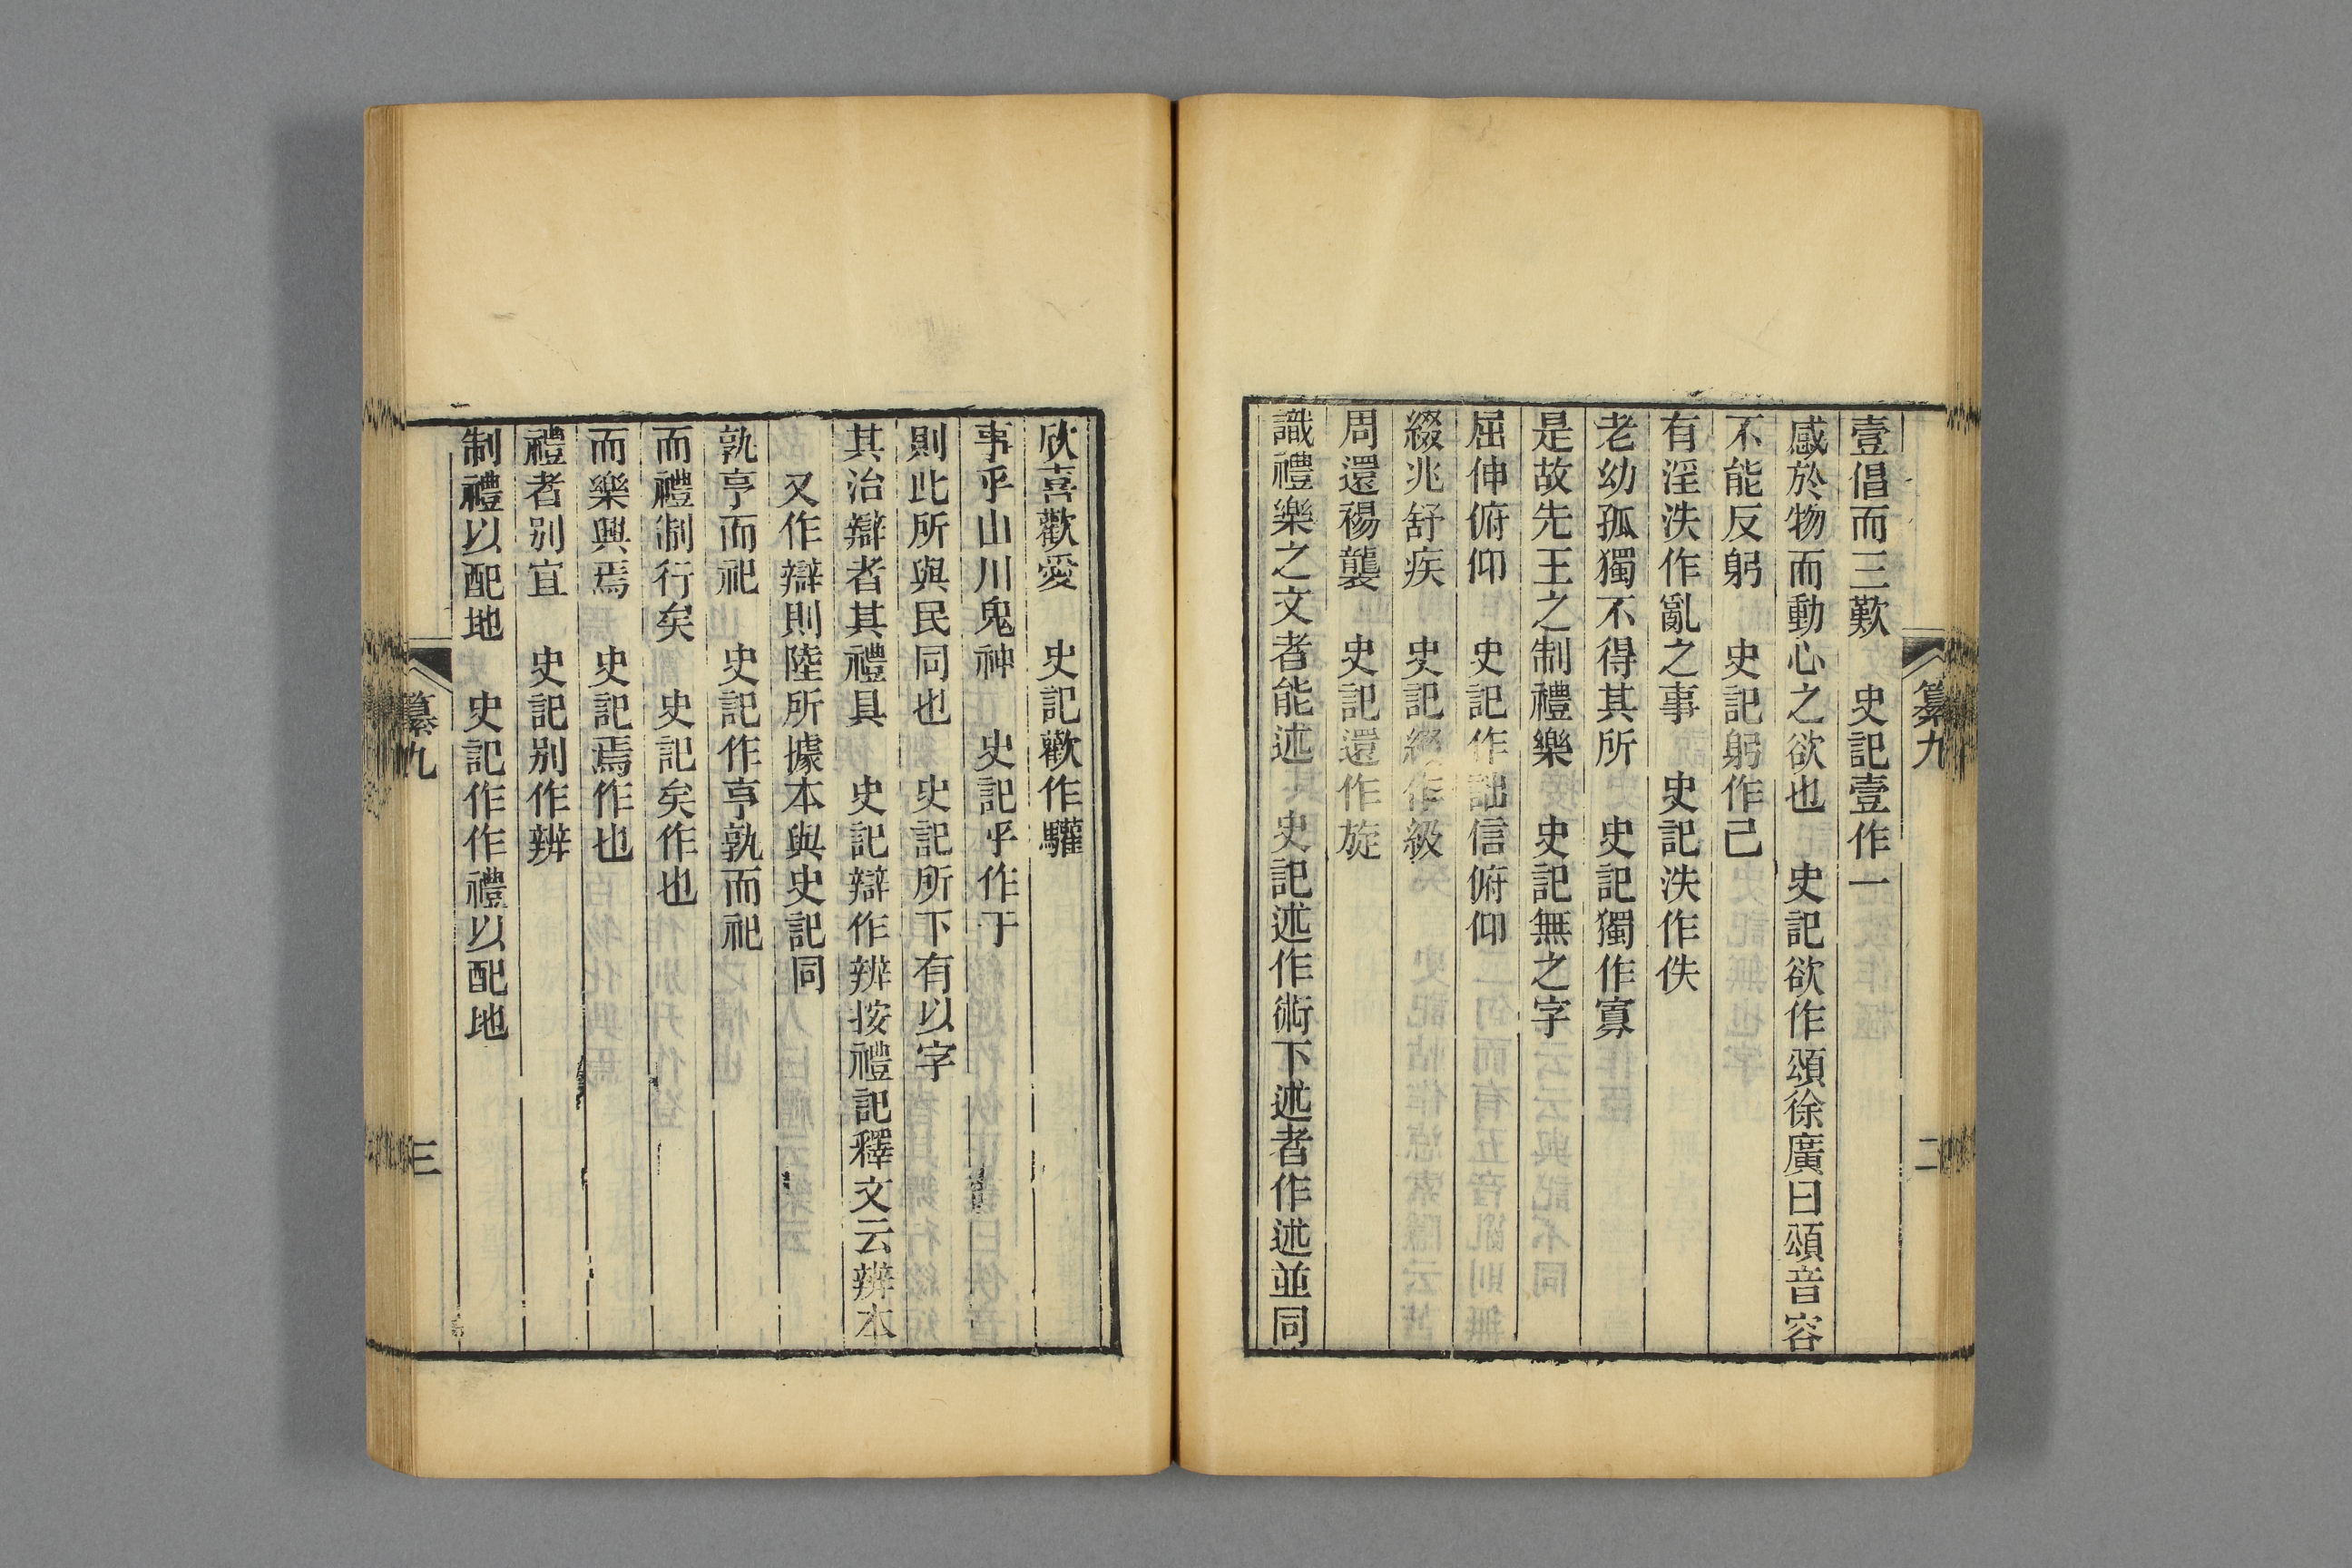 纂九
二
壹倡而三歎　史記壹作一
感於物而動心之欲也　史記欲作頌徐廣曰頌音容
不能反躬　史記躬作己
有淫泆作亂之事　史記泆作佚
老幼孤獨不得其所　史記獨作寡
是故先王之制禮樂　史記無之字
屈伸俯仰　史記作詘信俯仰
綴兆舒疾　史記綴作級
周還裼襲　史記還作旋
識禮樂之文者能述　史記述作術下述者作述並同
欣喜歡愛　史記歡作驩
事乎山川鬼神　史記乎作于
則此所與民同也　史記所下有以字
其治辯者其禮具　史記辯作辨按禮記釋文云辨本
又作辯則陸所據本與史記同
孰亨而祀　史記作亨孰而祀
而禮制行矣　史記矣作也
而樂興焉　史記焉作也
禮者別宜　史記別作辨
制禮以配地　史記作作禮以配地
纂九
三